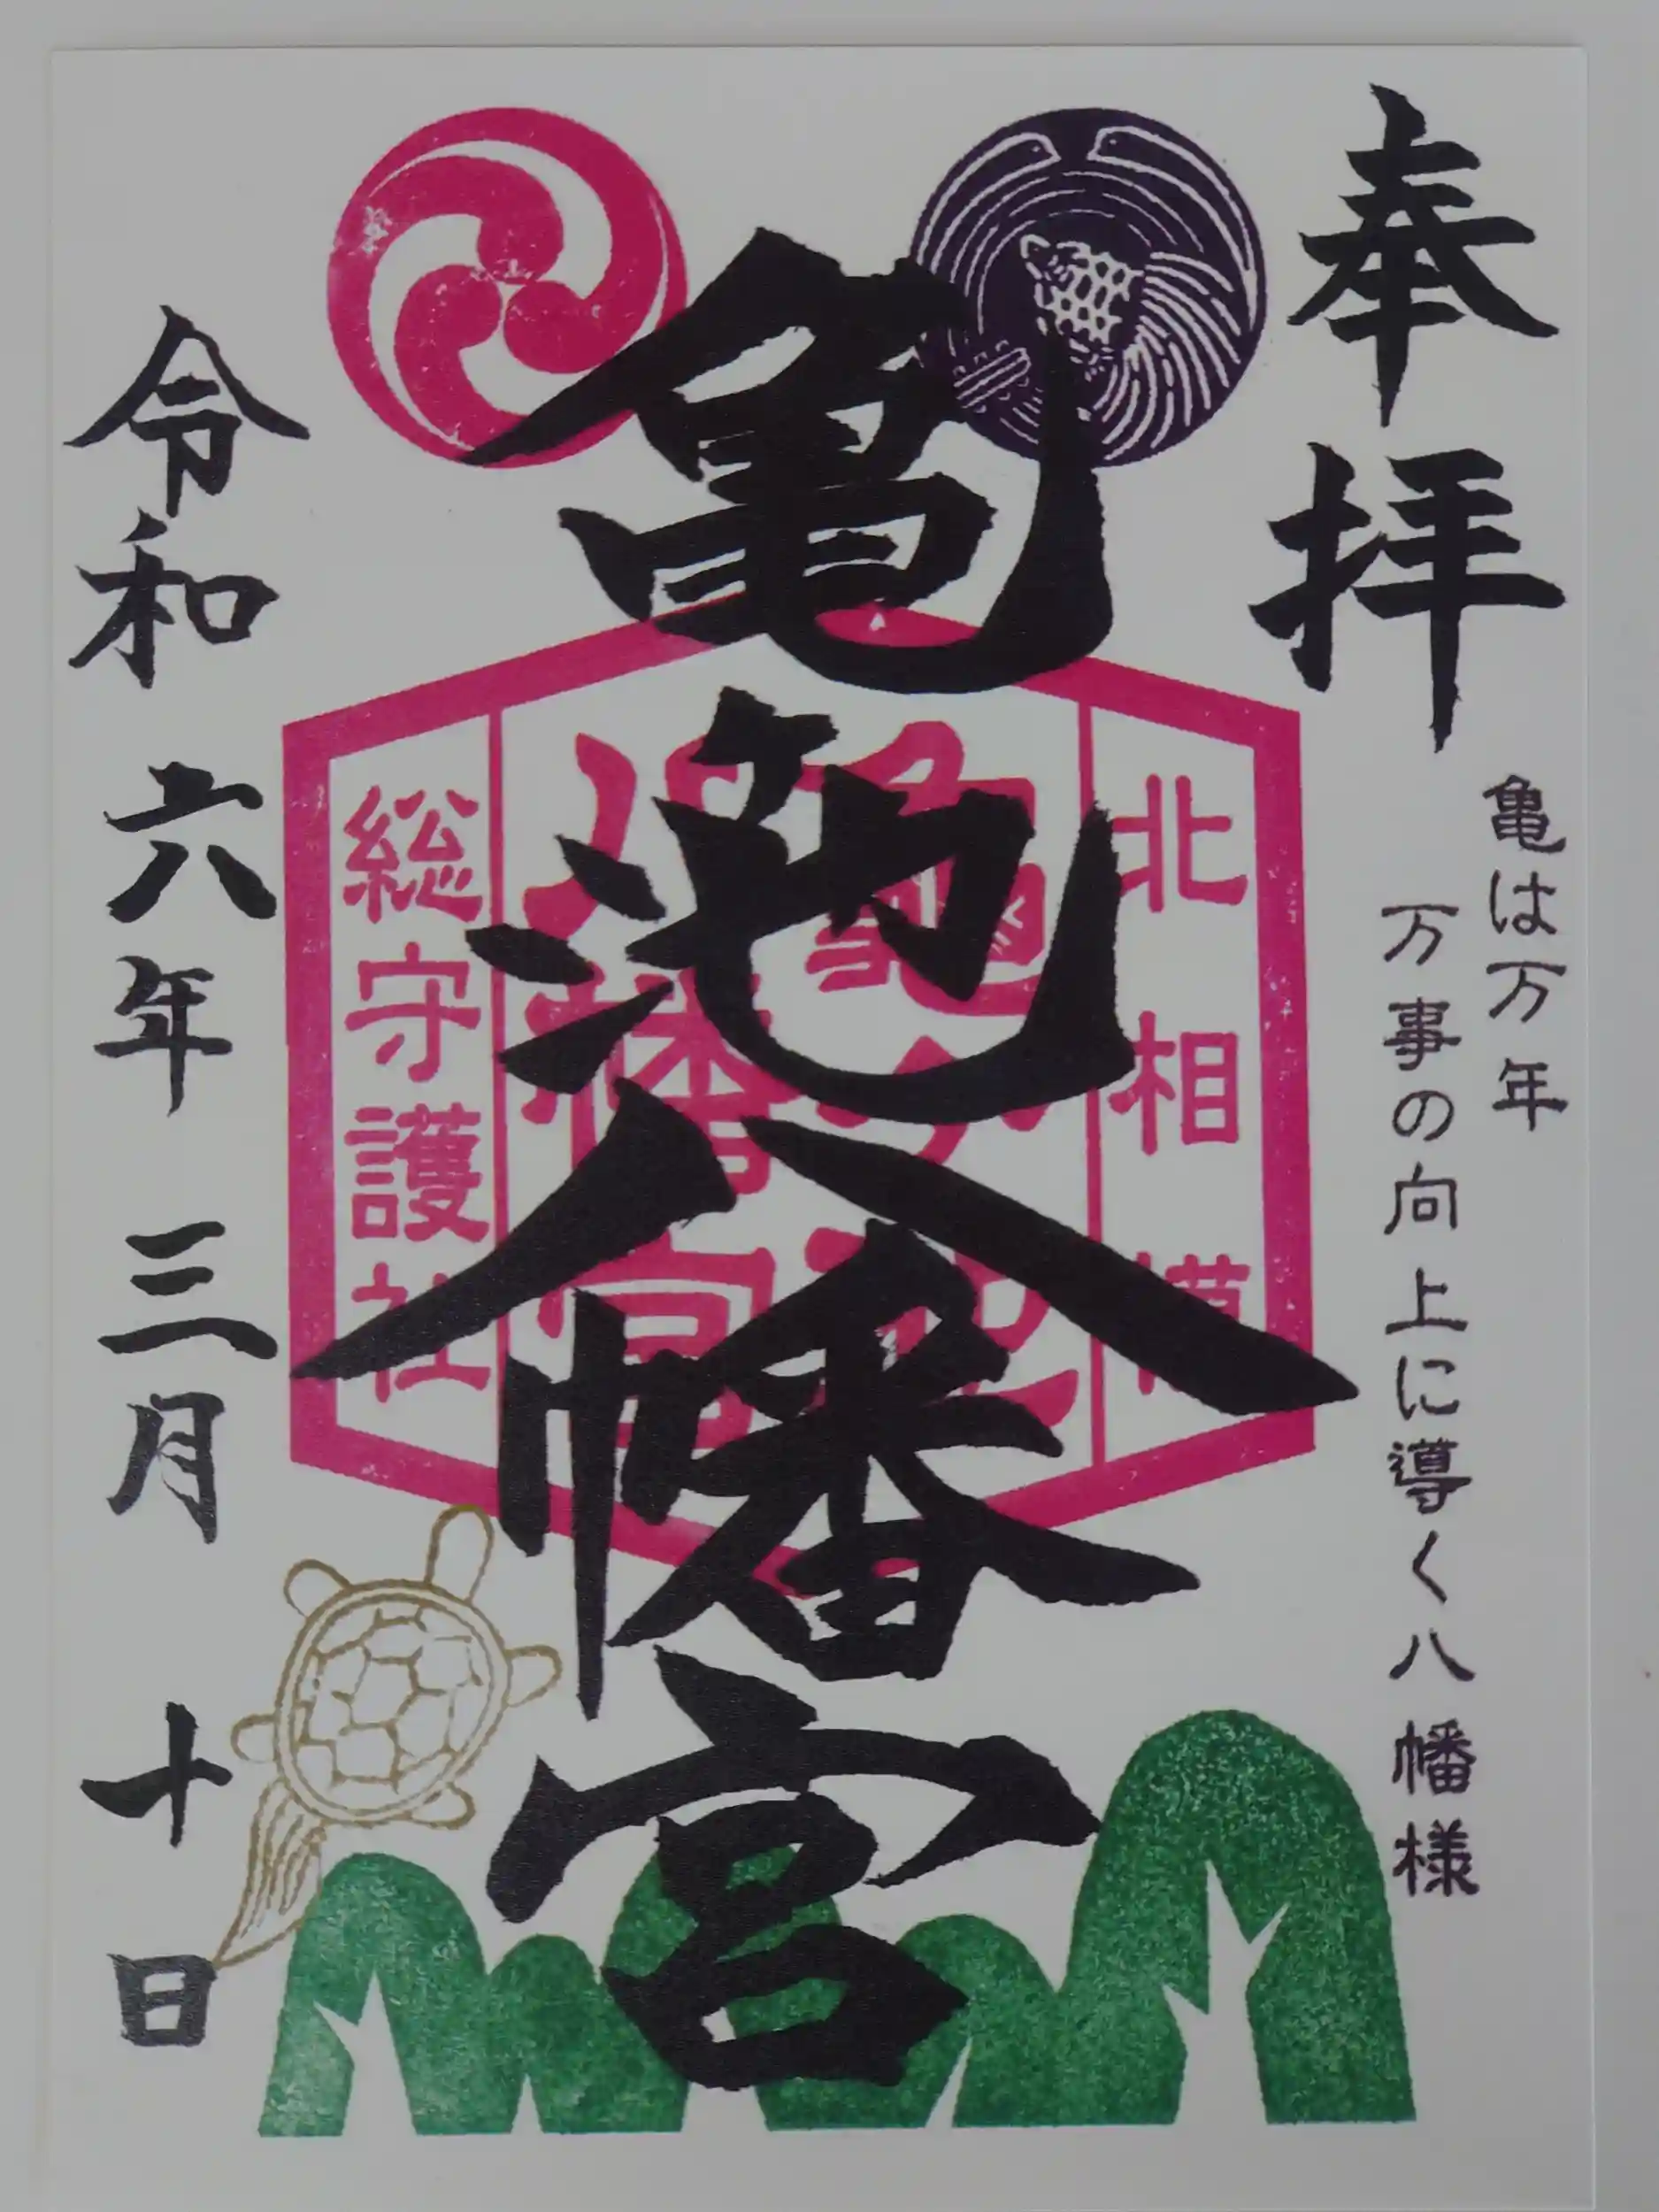 奉拝
亀は万年
万事の向上に導く八幡様
亀池八幡宮
北相模
亀ヶ池
八幡宮
総守護社
令和六年三月十日